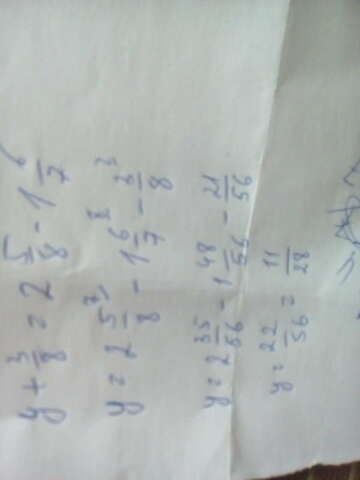 y + 3/8 = 2 5/8 - 1 6/7
y = 2 5/8 - 1 6/7 - 3/8
y = 2 35/56 - 1 48/56 - 21/56
y = 22/56 = 11/28